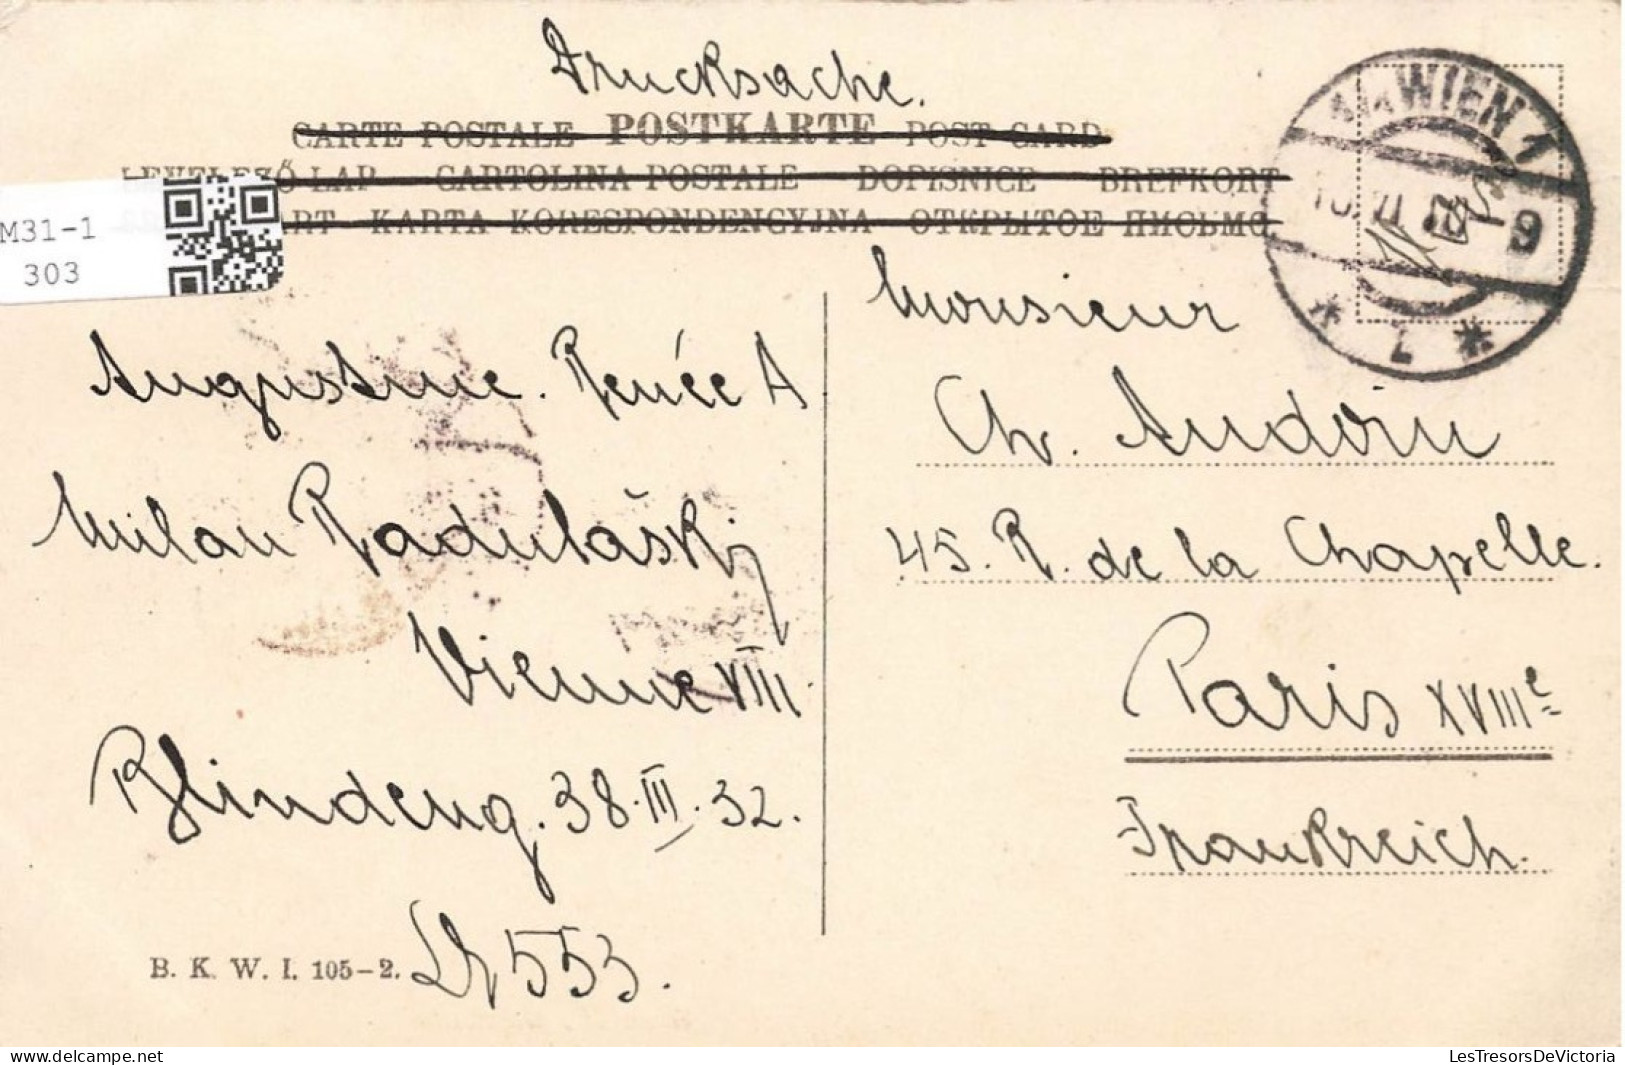 Drucksache.
CARTE POSTALE POSTKARTE POST CARD
LEVELEZŐ-LAP CARTOLINA POSTALE DOPISNICE BREFKORT
KARTA KORESPONDENCYJNA ОТКРЫТОЕ ПИСЬМО
M31-1
303
1/1 WIEN 1
9
* L *
Monsieur
Ch. Audoin
45. R. de la Chapelle.
Paris XVIIIe
Frankreich.
Augustine. Renée A
Milan Radulaški
Vienne VIII
Blindeng. 38. III. 32.
B. K. W. I. 105-2.
553.
LesTresorsDeVictoria